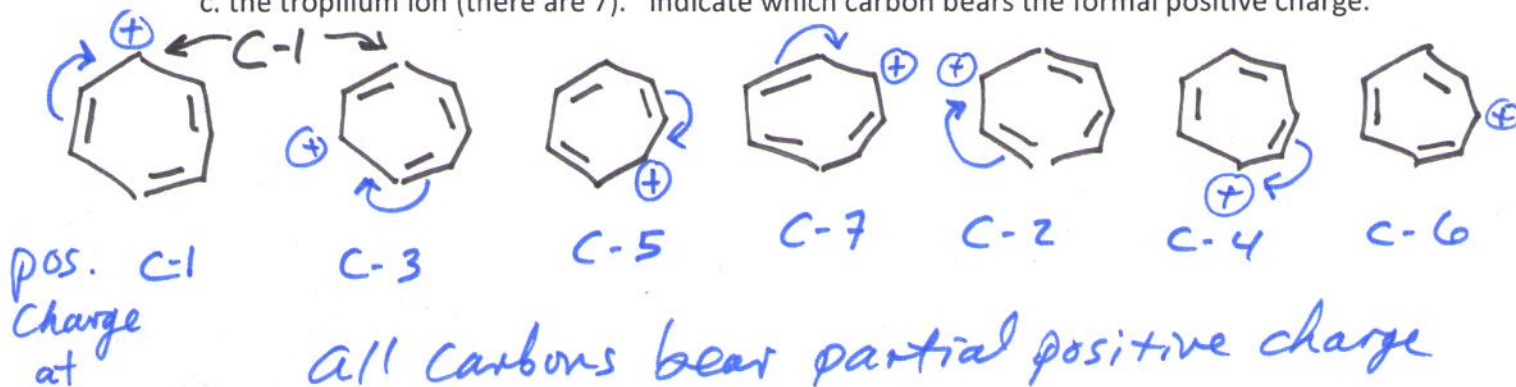 c. the tropilium ion (there are 7). Indicate which carbon bears the formal positive charge.
+ C-1 + +
+ + + +
pos. C-1 C-3 C-5 C-7 C-2 C-4 C-6
Charge
at all carbons bear partial positive charge